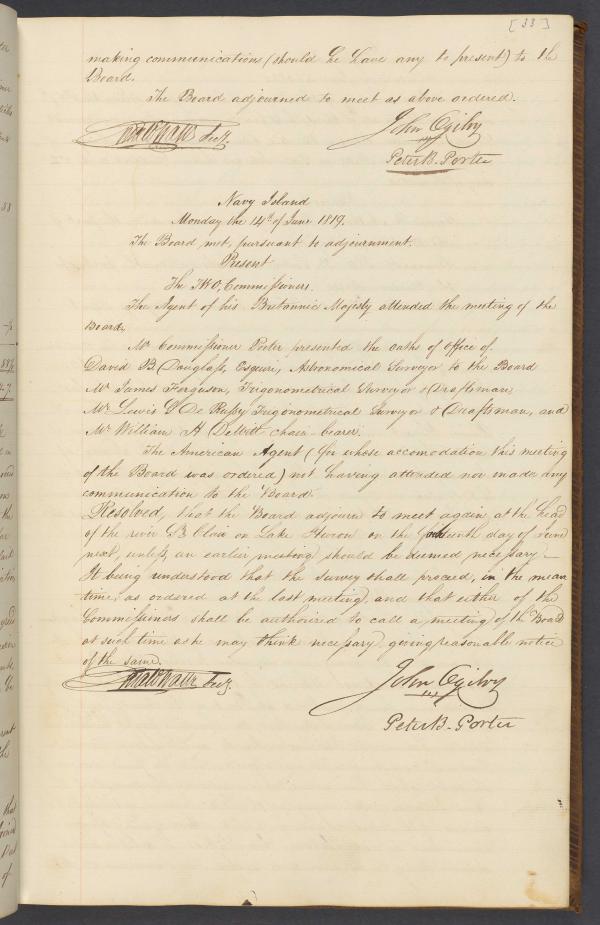 [33]
making communications (should he have any to present) to the
Board.
The Board adjourned to meet as above ordered.
Secy.
John Ogilvy
Peter B. Porter
Navy Island
Monday the 14th of June 1819.
The Board met, pursuant to adjournment.
Present
The two Commissioners.
The Agent of his Britannic Majesty attended the meeting of the
Board.
Mr Commissioner Porter presented the oaths of Office of
David B. Douglass, Esquire, Astronomical Surveyor to the Board
Mr James Ferguson, Trigonometrical Surveyor & Draftsman,
Mr Lewis G De Russy Trigonometrical Surveyor & Draftsman, and
Mr William A DeWitt chain-bearer.
The American Agent (for whose accomodation this meeting
of the Board was ordered) not having attended nor made any
communication to the Board.
Resolved, that the Board adjourn to meet again at the head
of the river St Clair on Lake Huron on the day of June
next, unless, an earlier meeting should be deemed necessary.
It being understood that the survey shall proceed, in the mean
time, as ordered at the last meeting, and that either of the
Commissioners shall be authorized to call a meeting of the Board
at such time as he may think necessary, giving reasonable notice
of the same.
Secy.
John Ogilvy
Peter B. Porter